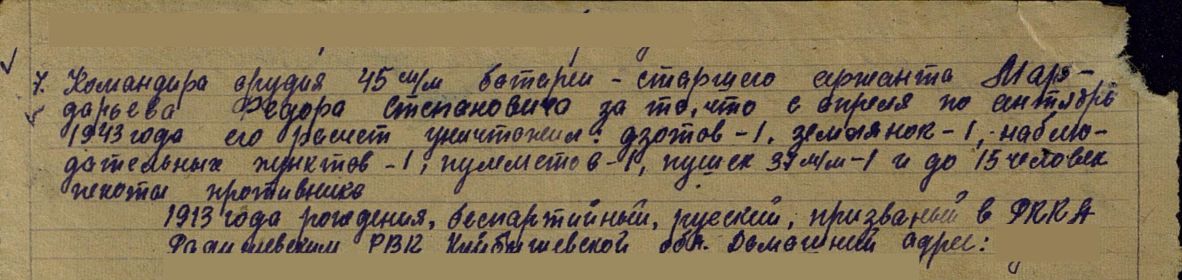 7. Командира орудия 45 м/м батареи - старшего сержанта Мар-
дарьева Федора Степановича за то, что с апреля по сентябрь
1943 года его расчет уничтожил: дзотов - 1, землянок - 1, наблю-
дательных пунктов - 1, пулеметов - 1, пушек 37 м/м - 1 и до 15 человек
пехоты противника
1913 года рождения, беспартийный, русский, призваный в РККА
Радищевским РВК Куйбышевской обл. Домашний адрес: